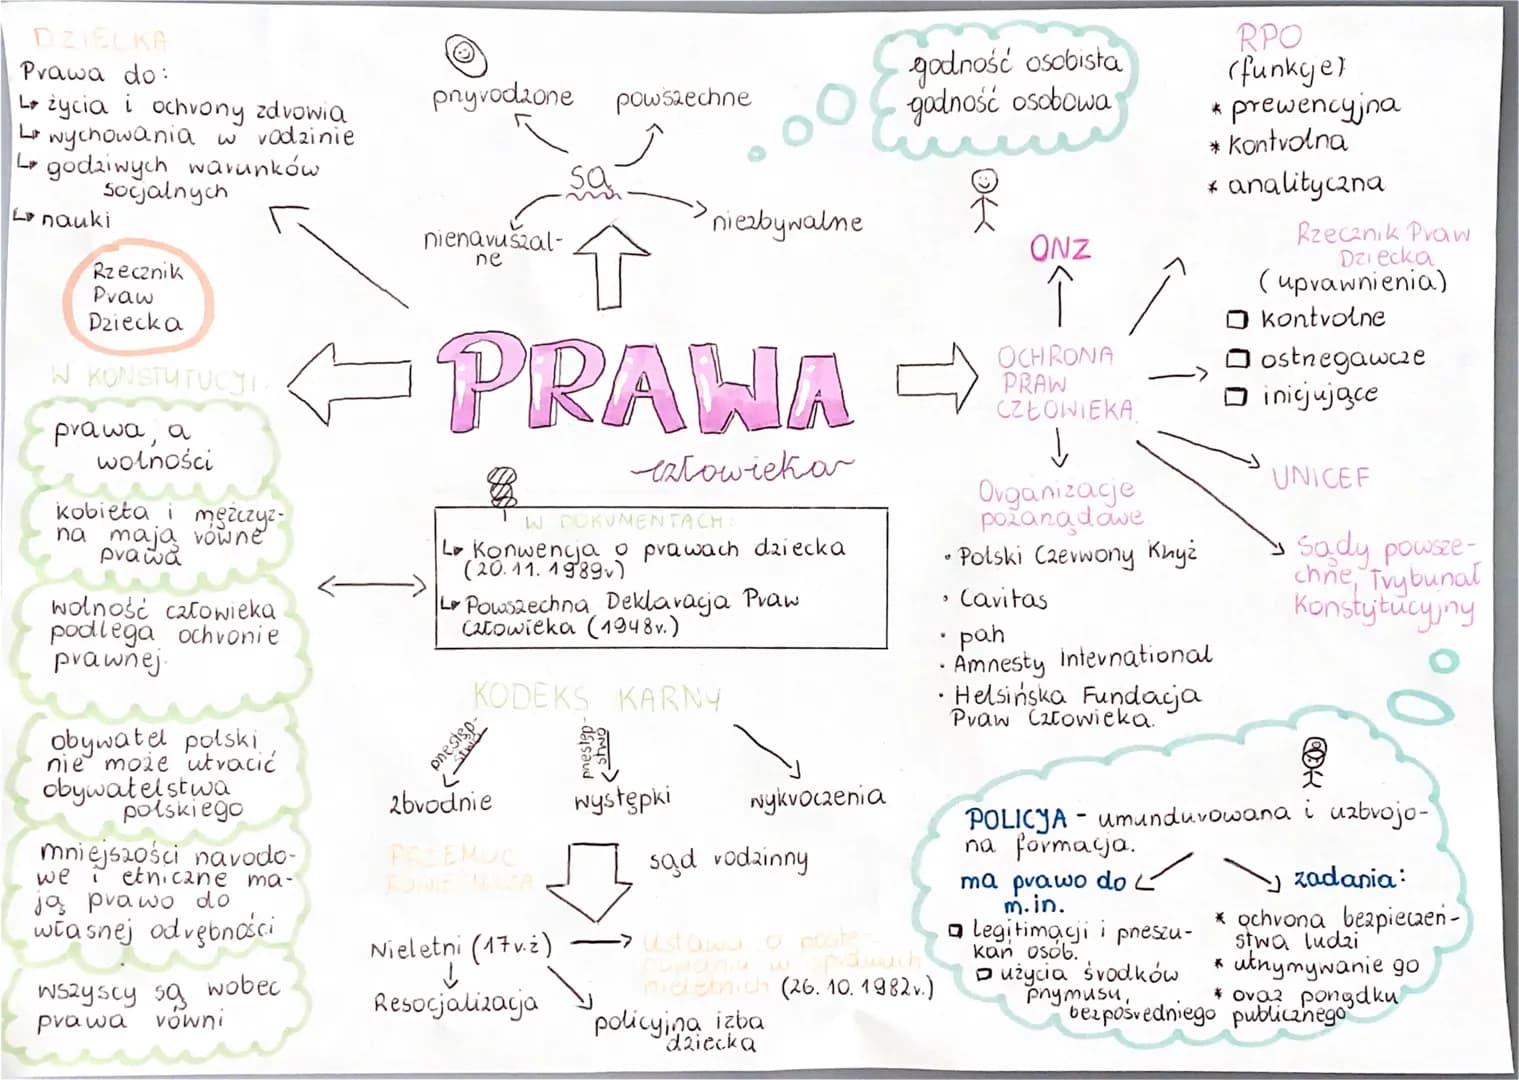 DZIECKA
Prawa do:
↳ życia i ochrony zdrowia
↳ wychowania w rodzinie
↳ godziwych warunków
socjalnych
↳ nauki
Rzecznik
Praw
Dziecka
W KONSTYTUCJI
prawa, a
wolności
kobieta i mężczyz-
na mają równe
prawa
wolność człowieka
podlega ochronie
prawnej.
obywatel polski
nie może utracić
obywatelstwa
polskiego
mniejszości narodo-
we i etniczne ma-
ją prawo do
własnej odrębności
wszyscy są wobec
prawa równi
przyrodzone
powszechne
są
nienaruszal-
ne
niezbywalne
PRAWA
człowieka
W DOKUMENTACH:
↳ Konwencja o prawach dziecka
(20.11.1989r)
↳ Powszechna Deklaracja Praw
Człowieka (1948r.)
KODEKS KARNY
przestęp-
stwo
przestęp-
stwo
zbrodnie
występki
wykroczenia
PRZEMOC
RÓWIEŚNICZA
sąd rodzinny
Nieletni (17r.ż)
Ustawa o poste-
powaniu w sprawach
nieletnich (26.10.1982r.)
Resocjalizacja
policyjna izba
dziecka
godność osobista
godność osobowa
ONZ
OCHRONA
PRAW
CZŁOWIEKA
RPO
(funkcje)
* prewencyjna
* kontrolna
* analityczna
Rzecznik Praw
Dziecka
(uprawnienia)
□ kontrolne
□ ostrzegawcze
□ inicjujące
UNICEF
Sądy powsze-
chne, Trybunał
Konstytucyjny
Organizacje
pozarządowe
• Polski Czerwony Krzyż
• Caritas
• pah
• Amnesty International
• Helsińska Fundacja
Praw Człowieka.
POLICJA - umundurowana i uzbrojo-
na formacja.
ma prawo do
m.in.
□ legitymacji i przeszu-
kań osób.
□ użycia środków
przymusu,
bezpośredniego
zadania:
* ochrona bezpieczeń-
stwa ludzi
* utrzymywanie go
* oraz porządku
publicznego